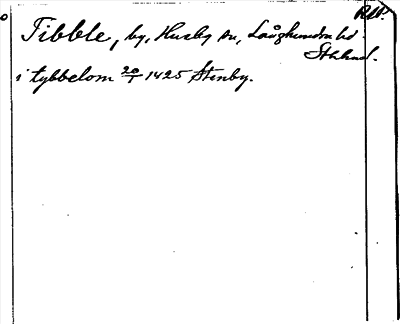 Tibble, by, Husby sn, Långhundra hd
Sthlmd.
i tybbelom 20/1 1425 Stenby.